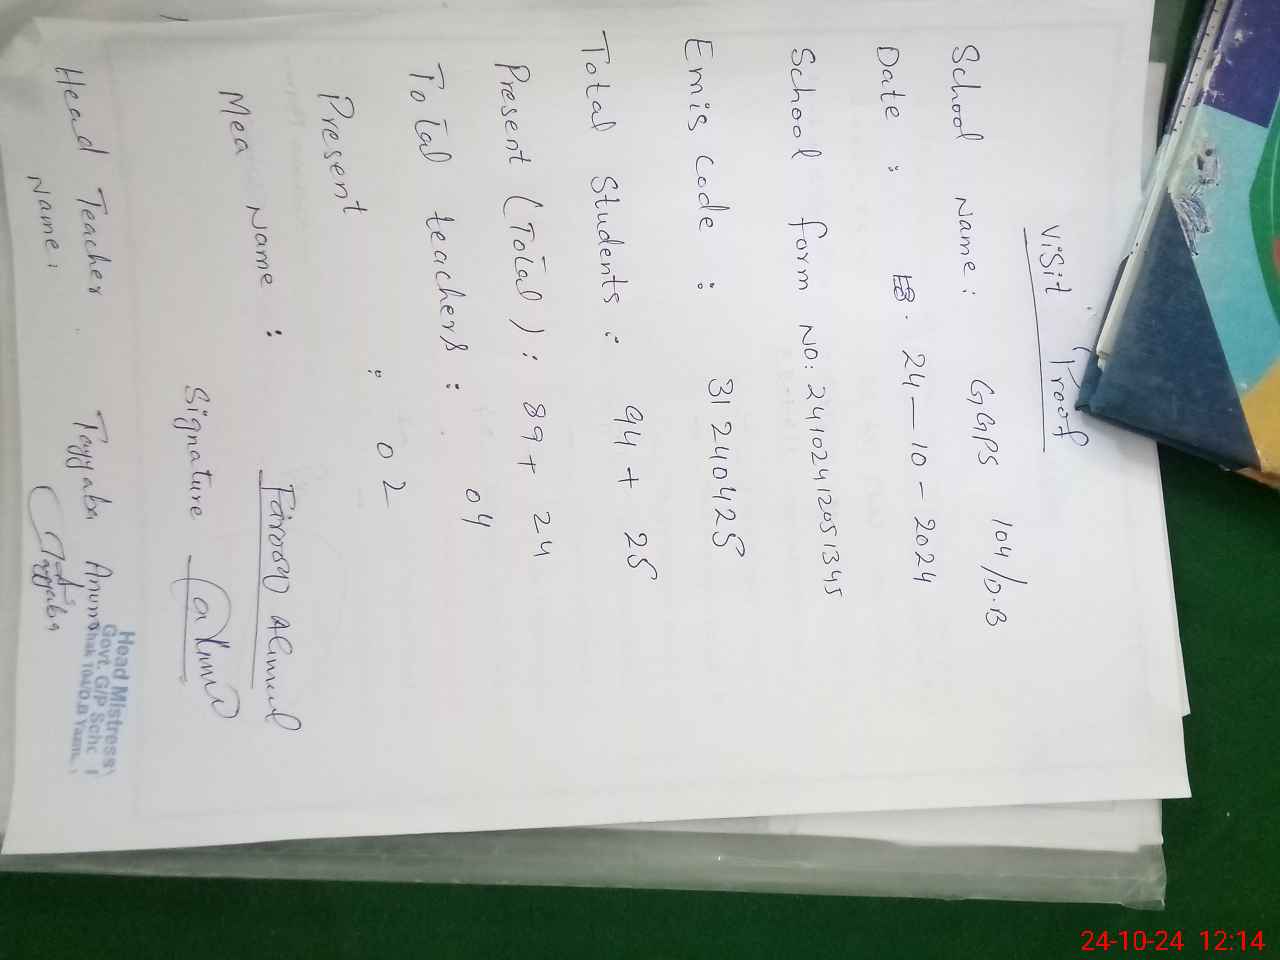 Visit Proof
School Name: GGPS 104/D.B
Date : 24-10-2024
School form NO: 24102412051345
Emis Code : 31240425
Total Students: 94 + 25
Present (Total): 89 + 24
Total teachers: 04
Present : 02
Mea Name :
Signature
Head Teacher Name: Tayyaba Anum
Tayyaba
Head Mistress
Govt. G/P
104/D.B
24-10-24 12:14